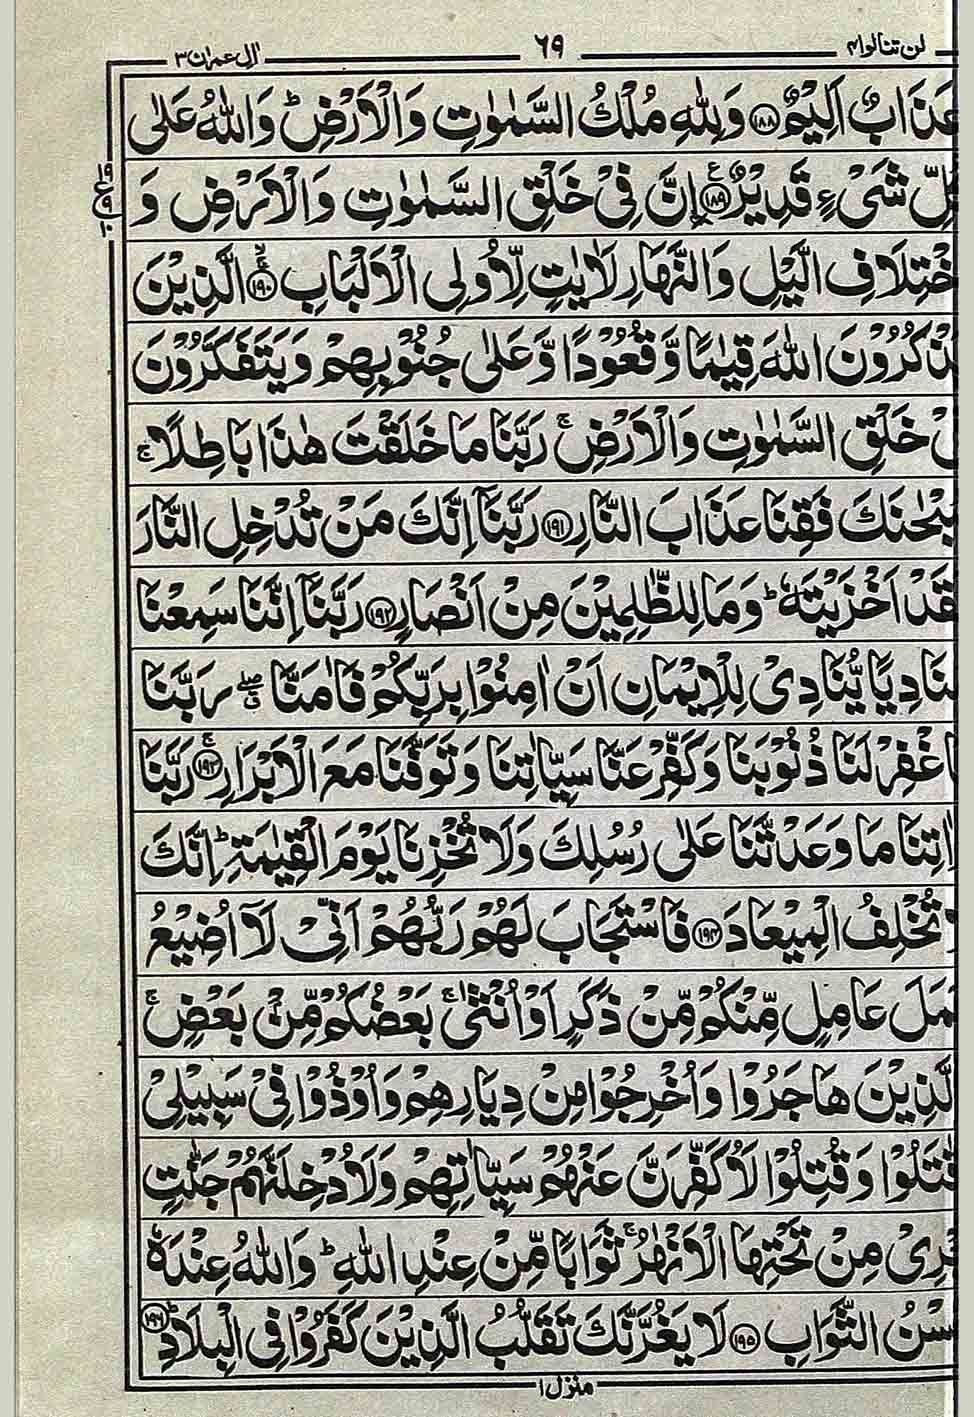 لن تنالوا ۴ ۶۹ اٰل عمرٰن ۳
عَذَابٌ اَلِيْمٌ ﴿۱۸۸﴾ وَلِلّٰهِ مُلْكُ السَّمٰوٰتِ وَالْاَرْضِ ؕ وَاللّٰهُ عَلٰى
شَىْءٍ قَدِيْرٌ ﴿۱۸۹﴾ ع اِنَّ فِىْ خَلْقِ السَّمٰوٰتِ وَالْاَرْضِ وَ
۱۹
ع ۹
۱۰
خْتِلَافِ الَّيْلِ وَالنَّهَارِ لَاٰيٰتٍ لِّاُولِى الْاَلْبَابِ ﴿۱۹۰﴾ الَّذِيْنَ
ذْكُرُوْنَ اللّٰهَ قِيٰمًا وَّقُعُوْدًا وَّعَلٰى جُنُوْبِهِمْ وَيَتَفَكَّرُوْنَ
خَلْقِ السَّمٰوٰتِ وَالْاَرْضِ ۚ رَبَّنَا مَا خَلَقْتَ هٰذَا بَاطِلًا ۚ
بْحٰنَكَ فَقِنَا عَذَابَ النَّارِ ﴿۱۹۱﴾ رَبَّنَاۤ اِنَّكَ مَنْ تُدْخِلِ النَّارَ
قَدْ اَخْزَيْتَهٗ ؕ وَمَا لِلظّٰلِمِيْنَ مِنْ اَنْصَارٍ ﴿۱۹۲﴾ رَبَّنَاۤ اِنَّنَا سَمِعْنَا
نَادِيًا يُّنَادِىْ لِلْاِيْمَانِ اَنْ اٰمِنُوْا بِرَبِّكُمْ فَاٰمَنَّا ۖ ق رَبَّنَا
غْفِرْ لَنَا ذُنُوْبَنَا وَكَفِّرْ عَنَّا سَيِّاٰتِنَا وَتَوَفَّنَا مَعَ الْاَبْرَارِ ۚ ﴿۱۹۳﴾ رَبَّنَا
اٰتِنَا مَا وَعَدْتَّنَا عَلٰى رُسُلِكَ وَلَا تُخْزِنَا يَوْمَ الْقِيٰمَةِ ؕ اِنَّكَ
تُخْلِفُ الْمِيْعَادَ ﴿۱۹۴﴾ فَاسْتَجَابَ لَهُمْ رَبُّهُمْ اَنِّىْ لَاۤ اُضِيْعُ
مَلَ عَامِلٍ مِّنْكُمْ مِّنْ ذَكَرٍ اَوْ اُنْثٰى ۚ بَعْضُكُمْ مِّنْۢ بَعْضٍ ۚ
لَّذِيْنَ هَاجَرُوْا وَاُخْرِجُوْا مِنْ دِيَارِهِمْ وَاُوْذُوْا فِىْ سَبِيْلِىْ
قٰتَلُوْا وَقُتِلُوْا لَاُكَفِّرَنَّ عَنْهُمْ سَيِّاٰتِهِمْ وَلَاُدْخِلَنَّهُمْ جَنّٰتٍ
جْرِىْ مِنْ تَحْتِهَا الْاَنْهٰرُ ۚ ثَوَابًا مِّنْ عِنْدِ اللّٰهِ ؕ وَاللّٰهُ عِنْدَهٗ
سْنُ الثَّوَابِ ﴿۱۹۵﴾ لَا يَغُرَّنَّكَ تَقَلُّبُ الَّذِيْنَ كَفَرُوْا فِى الْبِلَادِ ؕ ﴿۱۹۶﴾
منزل ۱